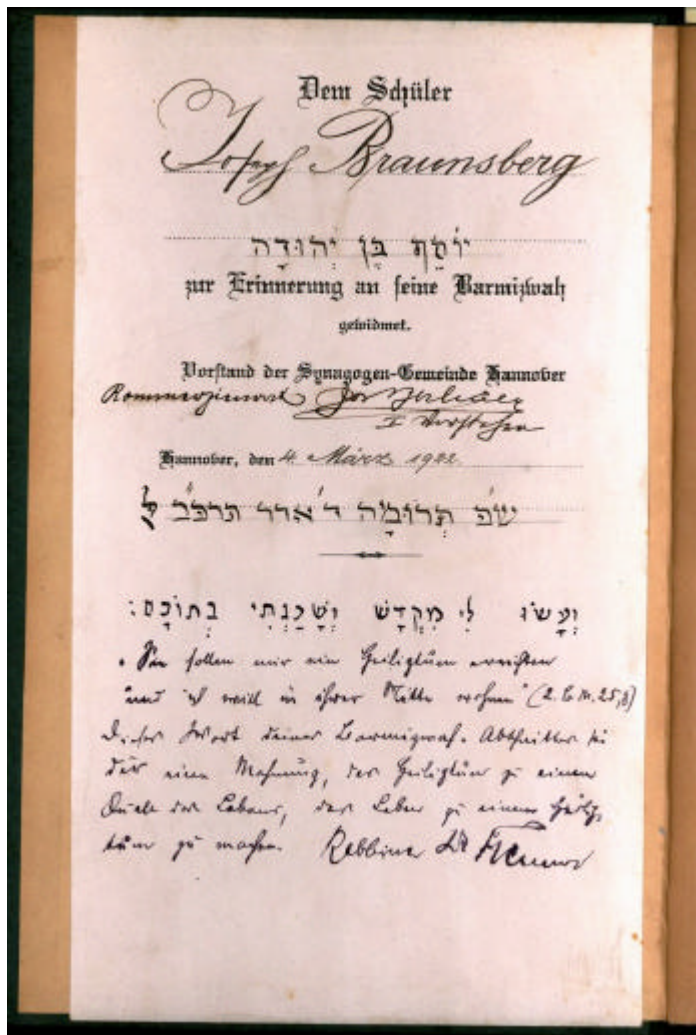 Dem Schüler
Joseph Braunsberg
יוֹסֵף בֶּן יְהוּדָה
zur Erinnerung an seine Barmizwah
gewidmet.
Vorstand der Synagogen-Gemeinde Hannover
Kommerzienrat
I Vorsteher
Hannover, den 4. März 1922.
ש״פ תְּרוּמָה ד׳ אדר תרפ״ב ל׳
וְעָשׂוּ לִי מִקְדָּשׁ וְשָׁכַנְתִּי בְּתוֹכָם:
„Sie sollen mir ein Heiligtum errichten
und ich will in ihrer Mitte wohnen“ (2. B. M. 25,8)
Dieses Wort deines Barmizwah-Abschnittes sei
dir eine Mahnung, das Heiligtum zu einem
Quell des Lebens, das Leben zu einem Heilig-
tum zu machen. Rabbiner Dr